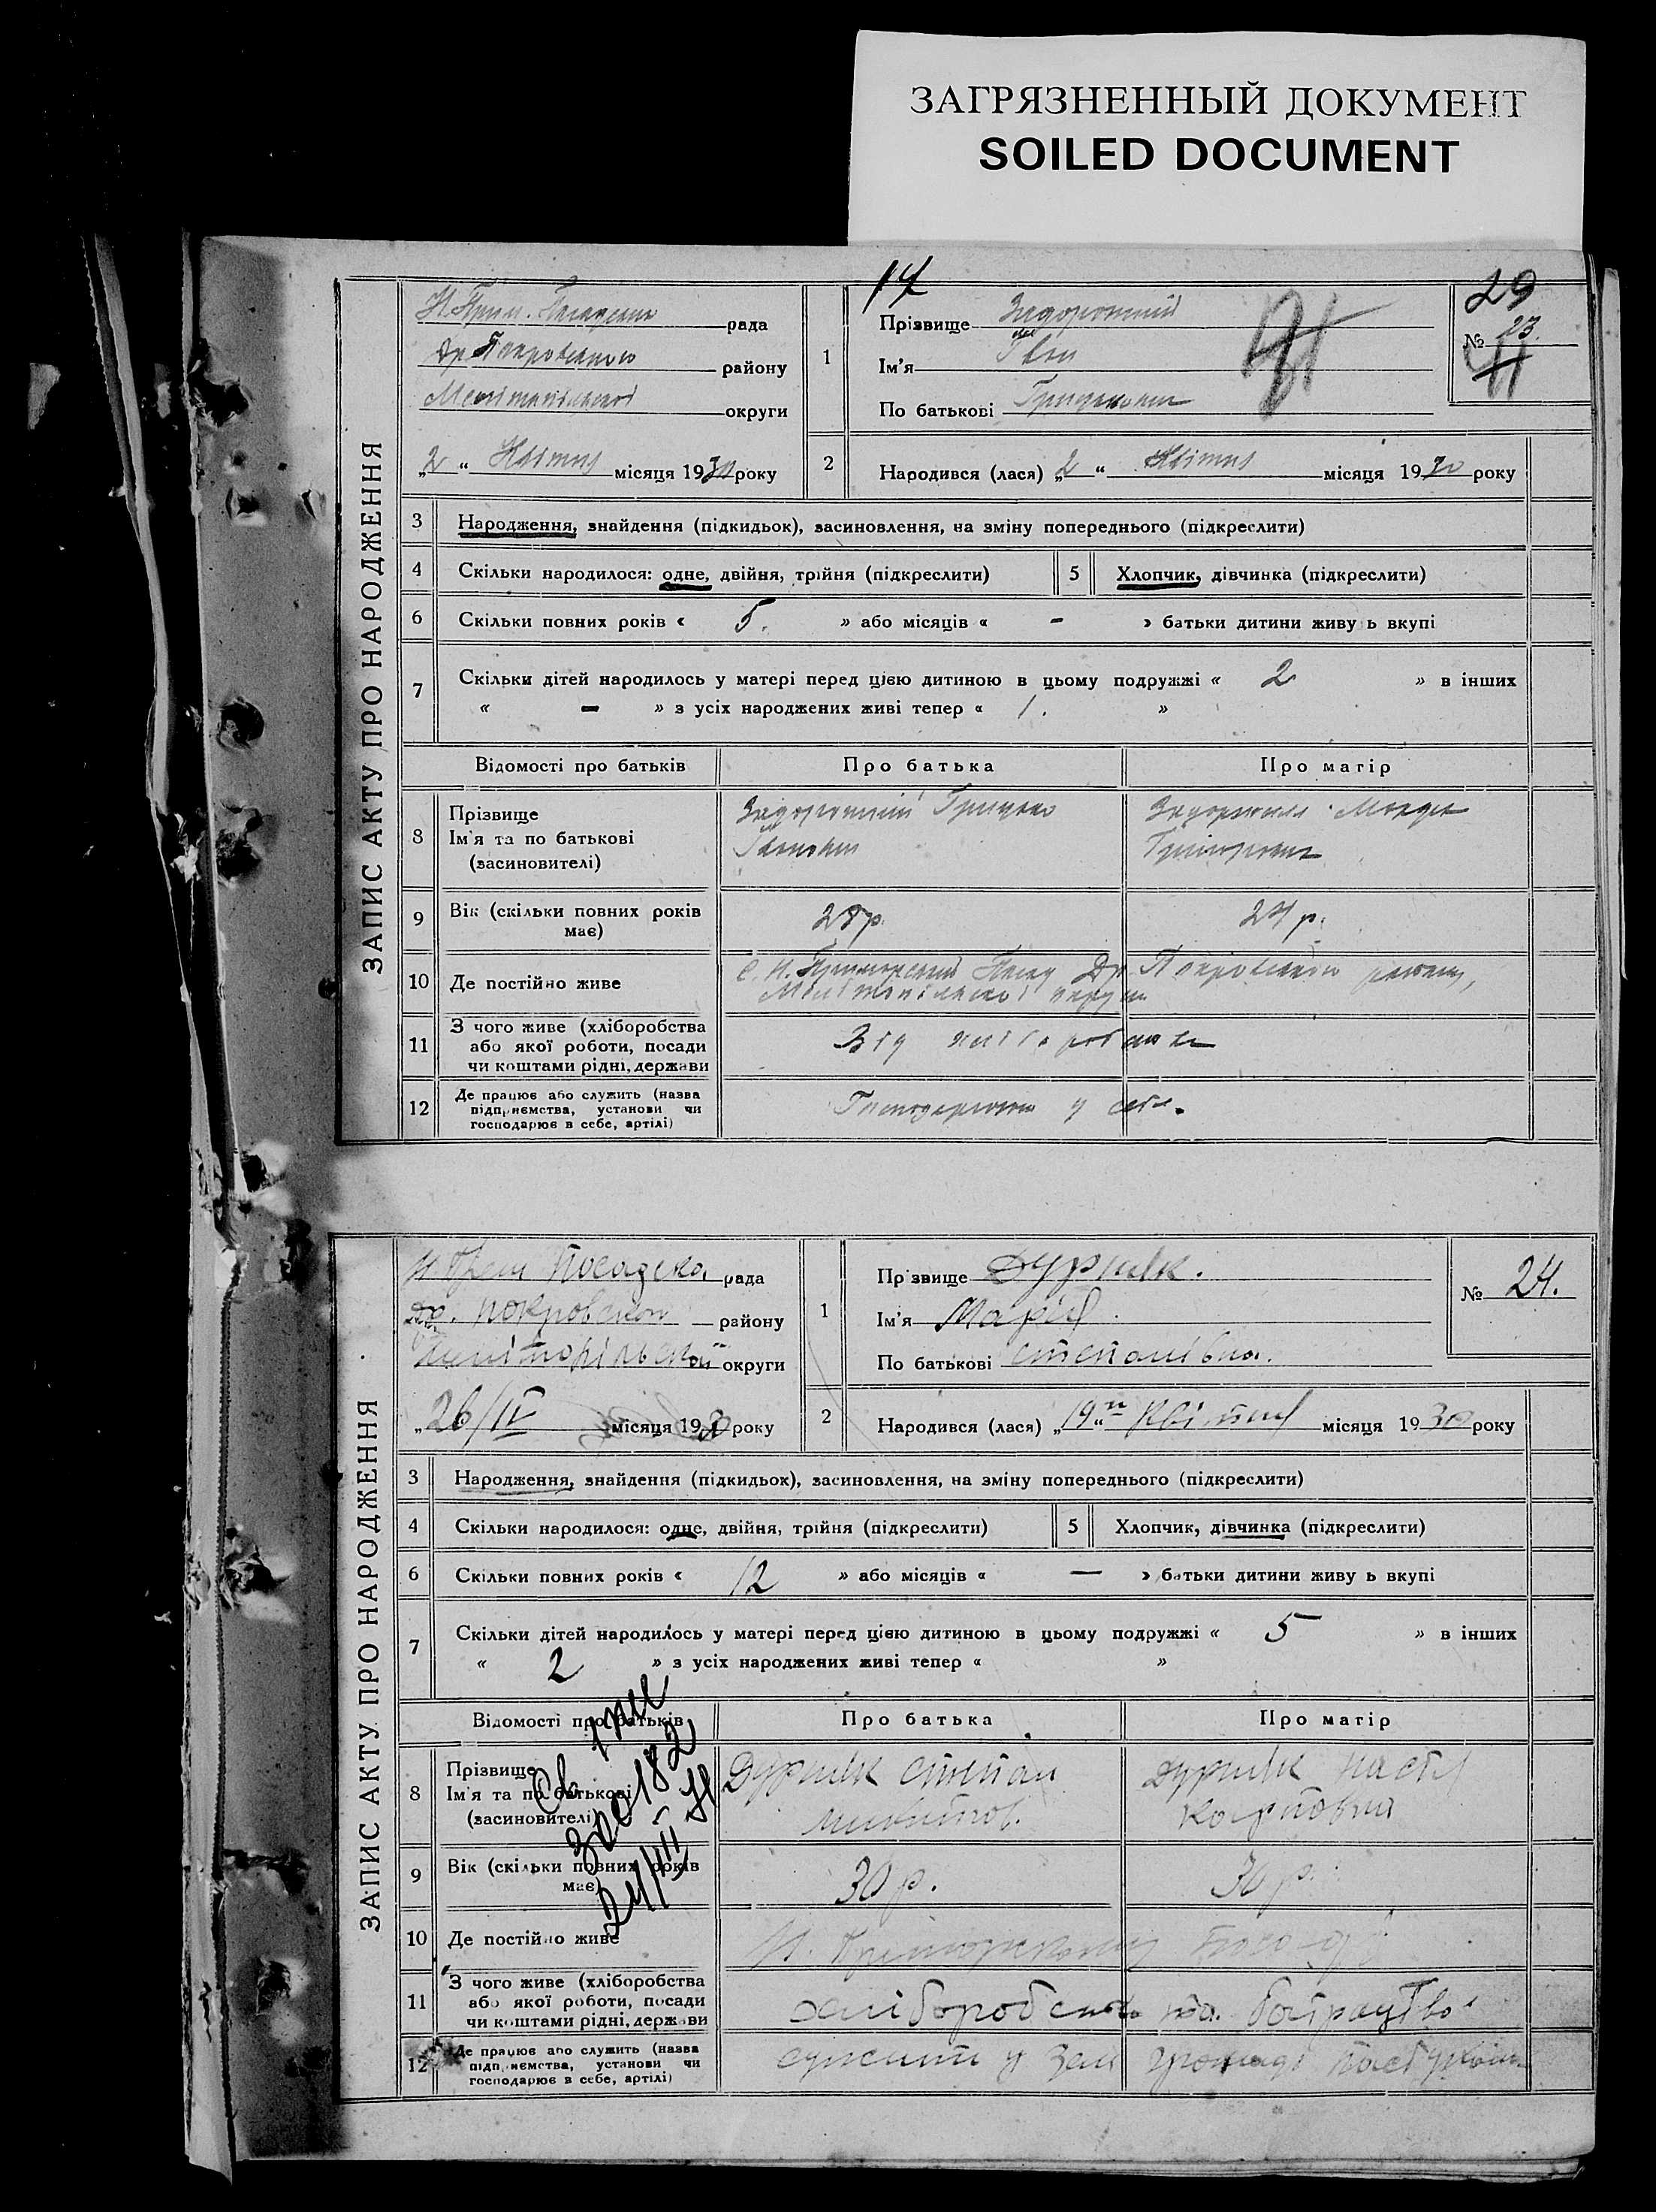 ЗАГРЯЗНЕННЫЙ ДОКУМЕНТ
SOILED DOCUMENT
14
29
ЗАПИС АКТУ ПРО НАРОДЖЕННЯ
Н. Прим. Посадська рада
Др Покровського району
Мелітопільської округи
„2“ Квітня місяця 1930 року
1
Прізвище Задорожний
Ім'я Іван
По батькові Грицькович
№ 23
2
Народився (лася) „2“ Квітня місяця 1930 року
3 Народження, знайдення (підкидьок), засиновлення, на зміну попереднього (підкреслити)
4 Скільки народилося: одне, двійня, трійня (підкреслити) 5 Хлопчик, дівчинка (підкреслити)
6 Скільки повних років « 5. » або місяців « - » батьки дитини живу ь вкупі
7 Скільки дітей народилось у матері перед цією дитиною в цьому подружжі « 2 » в інших
« - » з усіх народжених живі тепер « 1. »
Відомості про батьків Про батька Про матір
8 Прізвище
Ім'я та по батькові
(засиновителі)
Задорожний Грицько
Іванович
Задорожня
Григоровна
9 Вік (скільки повних років
має)
28 р. 24 р.
10 Де постійно живе
с. Н. Приморський Посад Др. Покровського району,
Мелітопільської округи
11 З чого живе (хліборобства
або якої роботи, посади
чи коштами рідні, держави
Від хліборобства
12 Де працює або служить (назва
підприємства, установи чи
господарює в себе, артілі)
у себе.
ЗАПИС АКТУ ПРО НАРОДЖЕННЯ
Н Прим Посадська рада
Др. Покровської району
Мелітопільської округи
„26/IV місяця 1930 року
1
Прізвище Дурняк.
Ім'я Марія
По батькові Степанівна.
№ 24.
2
Народився (лася) „19“ Квітня місяця 1930 року
3 Народження, знайдення (підкидьок), засиновлення, на зміну попереднього (підкреслити)
4 Скільки народилося: одне, двійня, трійня (підкреслити) 5 Хлопчик, дівчинка (підкреслити)
6 Скільки повних років « 12 » або місяців « — » батьки дитини живу ь вкупі
7 Скільки дітей народилось у матері перед цією дитиною в цьому подружжі « 5 » в інших
« 2 » з усіх народжених живі тепер « »
Відомості про батьків Про батька Про матір
8 Прізвище
Ім'я та по батькові
(засиновителі)
Дурняк Степан
Микитов.
Дурняк Настя
Карповна
9 Вік (скільки повних років
має)
30 р. 30 р.
10 Де постійно живе
Н. Приморському Посаді
11 З чого живе (хліборобства
або якої роботи, посади
чи коштами рідні, держави
хліборобство та батрацтво
12 Де працює або служить (назва
підприємства, установи чи
господарює в себе, артілі)
служить у Зем громаді пастухом